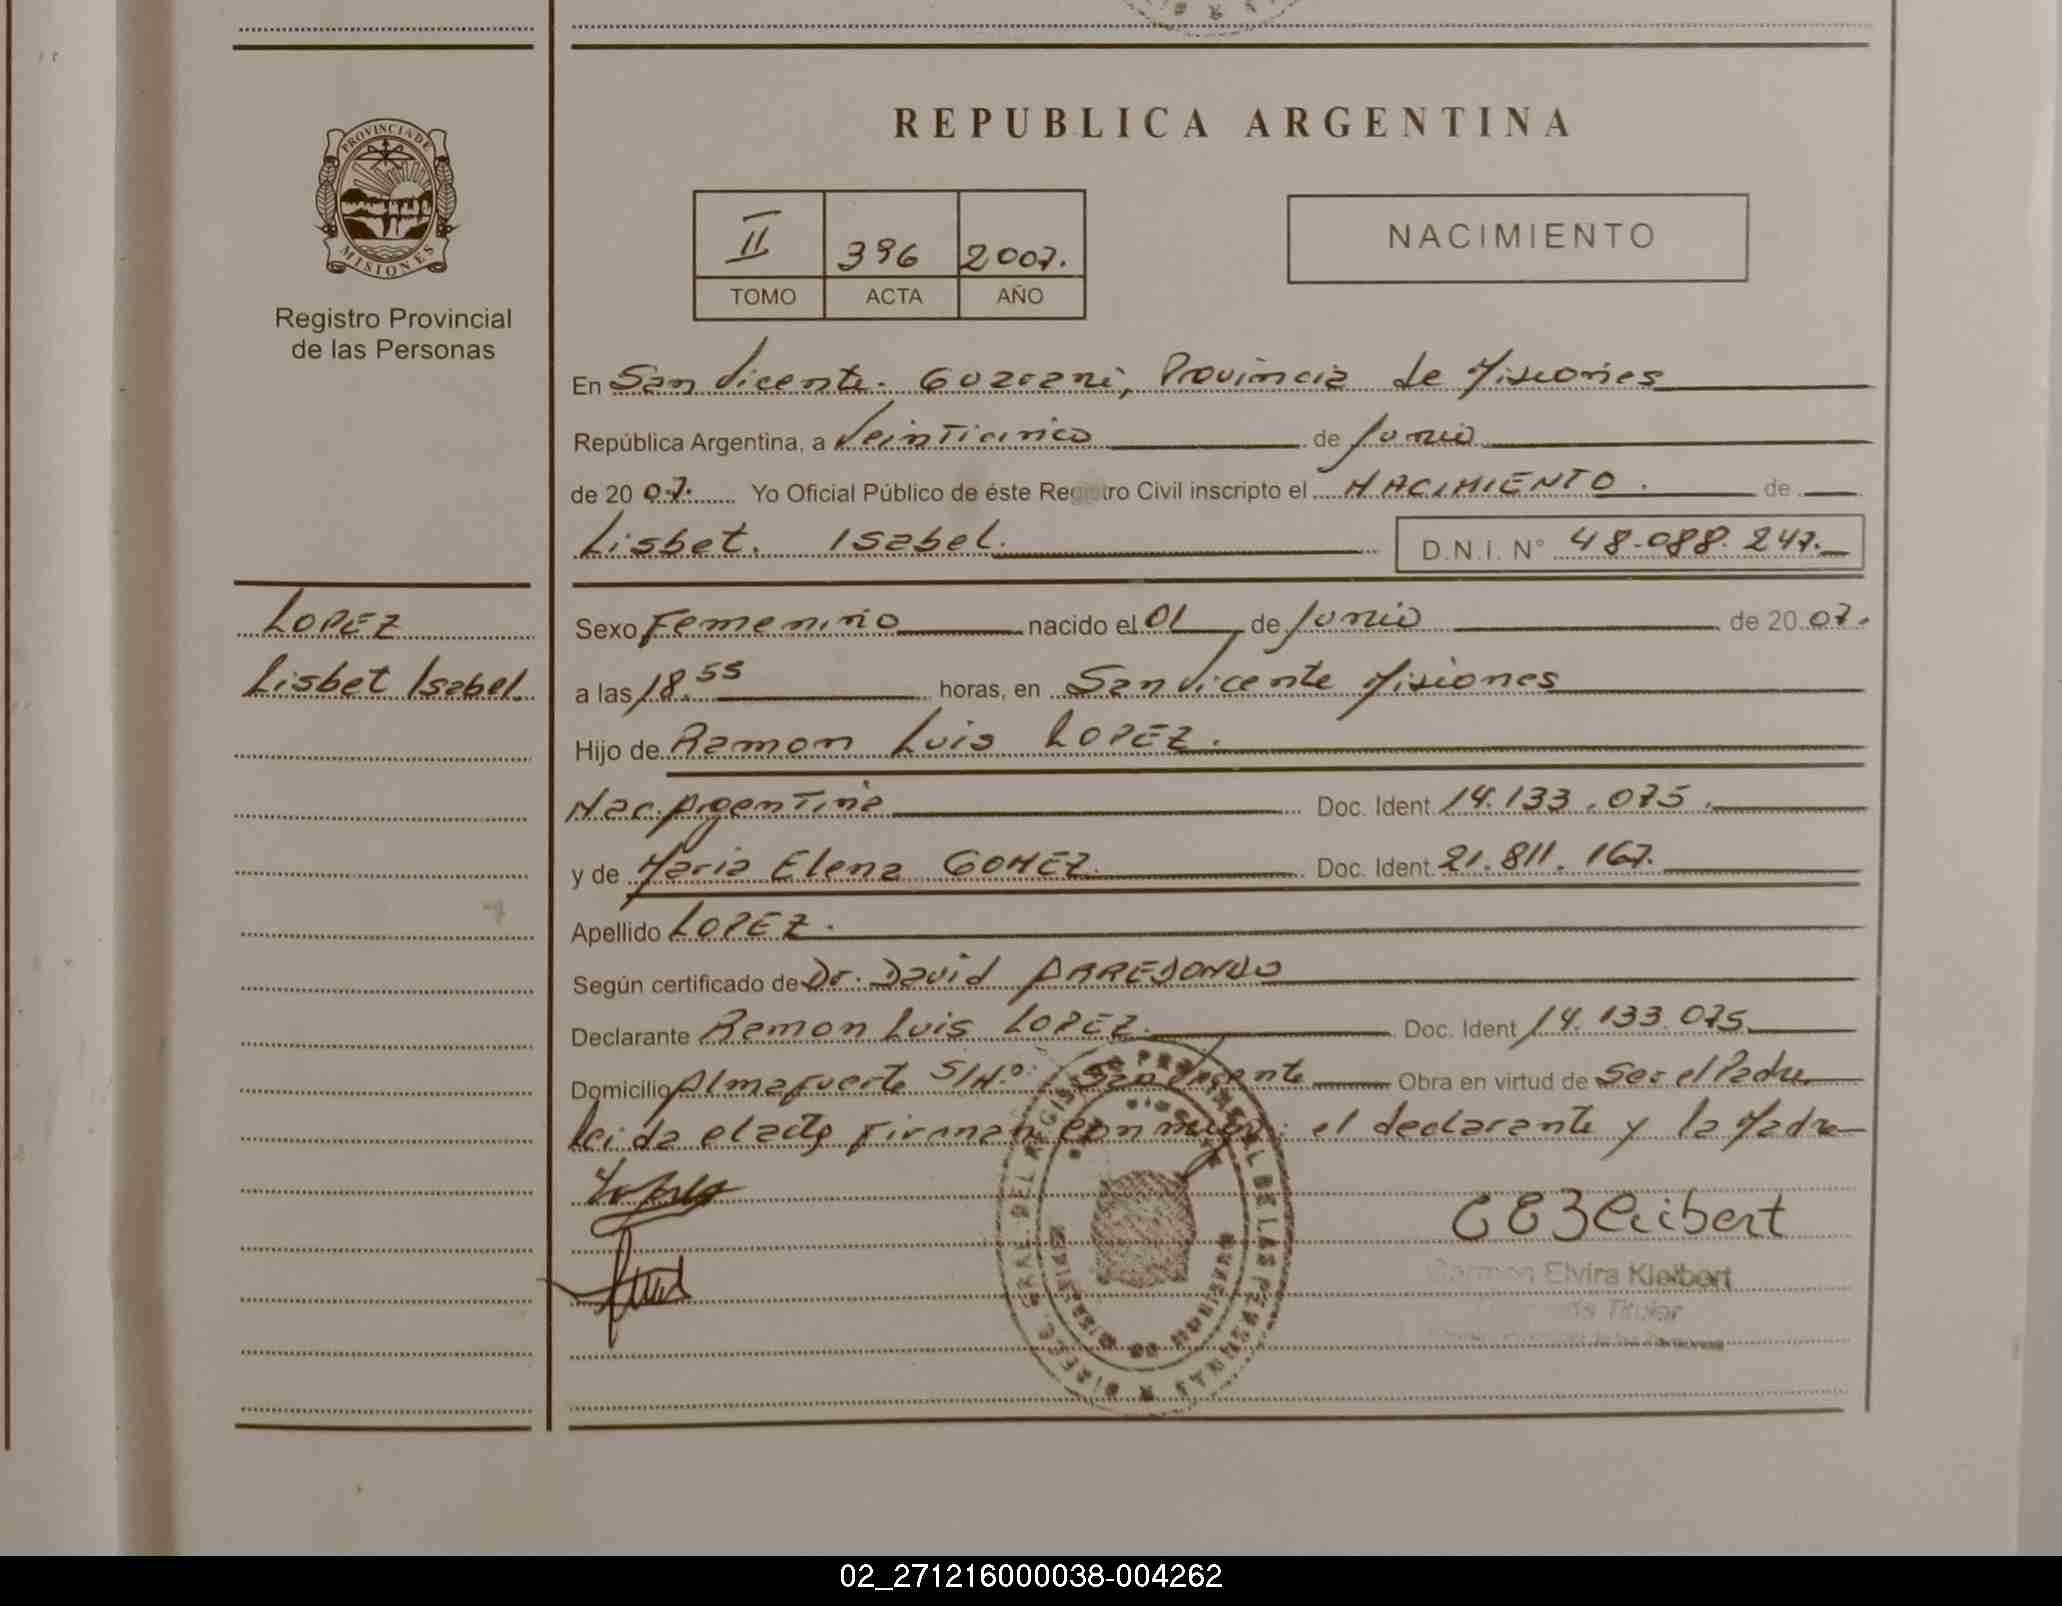 REPUBLICA ARGENTINA
PROVINCIA DE
MISIONES
Registro Provincial
de las Personas
II 396 2007.
TOMO ACTA AÑO
NACIMIENTO
En San Vicente. Guarani, Provincia de Misiones
República Argentina, a Veinticinco de Junio
de 20 07. Yo Oficial Público de éste Registro Civil inscripto el NACIMIENTO. de
Lisbet. Isabel. D.N.I. N° 48.088.247.
LOPEZ
Lisbet Isabel.
Sexo Femenino nacido el 01 de Junio de 20 07.
a las 18.55 horas, en San Vicente Misiones
Hijo de Ramon Luis LOPEZ.
Nac. Argentina Doc. Ident 14.133.075.
y de Maria Elena GOMEZ. Doc. Ident. 21.811.167.
Apellido LOPEZ.
Según certificado de Dr. David ARREDONDO
Declarante Ramon Luis LOPEZ. Doc. Ident 14.133.075
Domicilio Almafuerte S/N.° San Vicente Obra en virtud de Ser el Padre
Leida el acta Firman conmigo: el declarante y la Madre
Carmen Elvira Kleibert
Titular
02_271216000038-004262